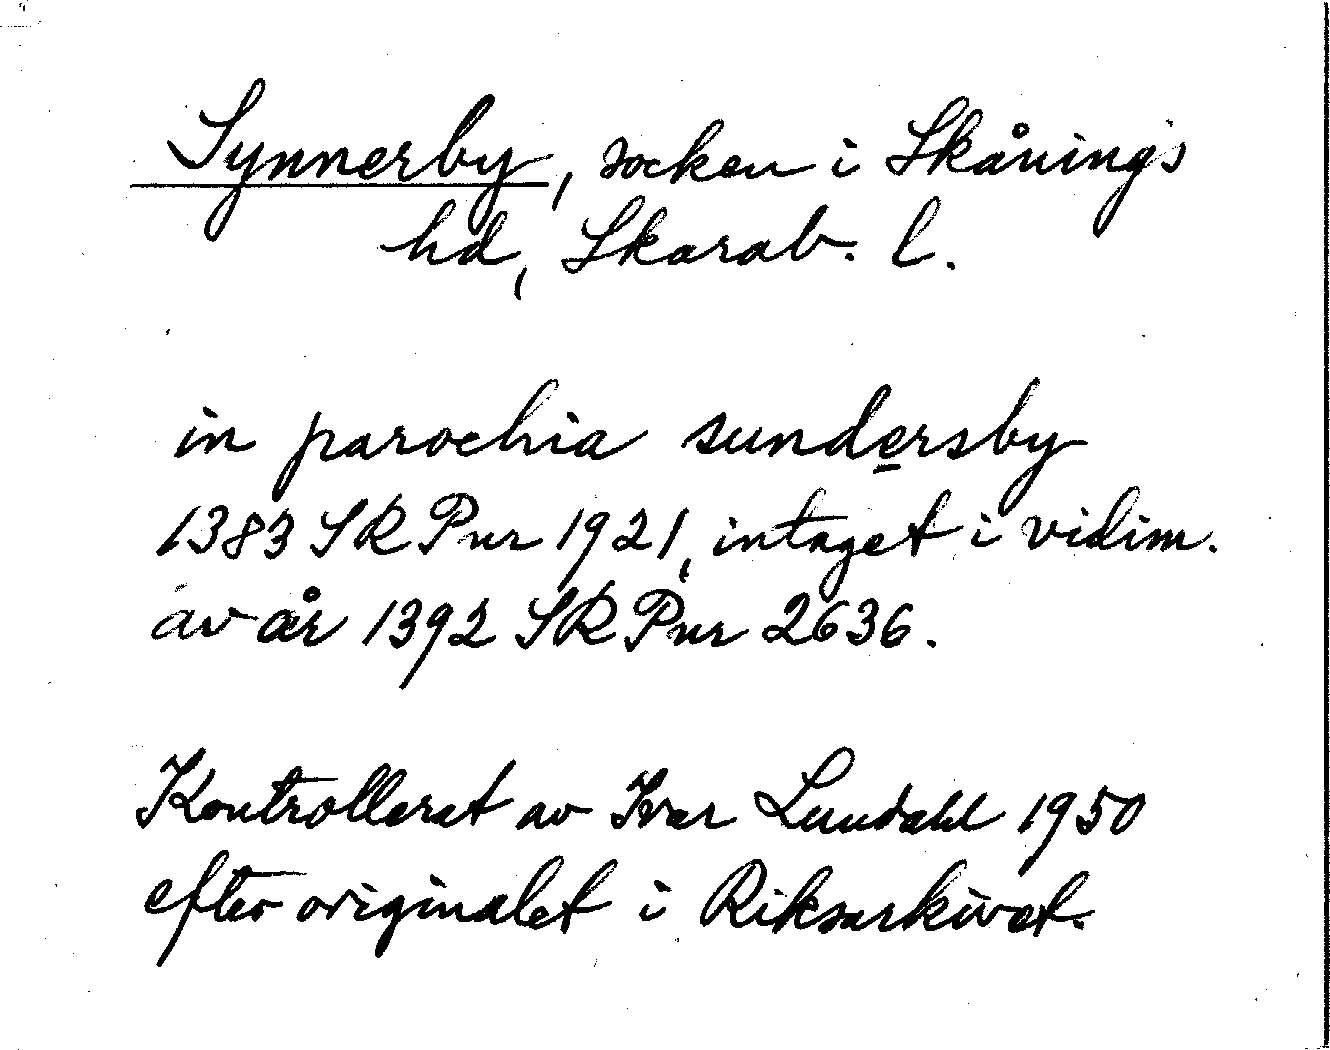 Synnerby, socken i Skånings
hd, Skarab. l.
in parochia sundersby
1383 SRPur 1921, intaget i vidim.
av år 1392 SRPur 2636.
Kontrollerat av Ivar Lundahl 1950
efter originalet i Riksarkivet.